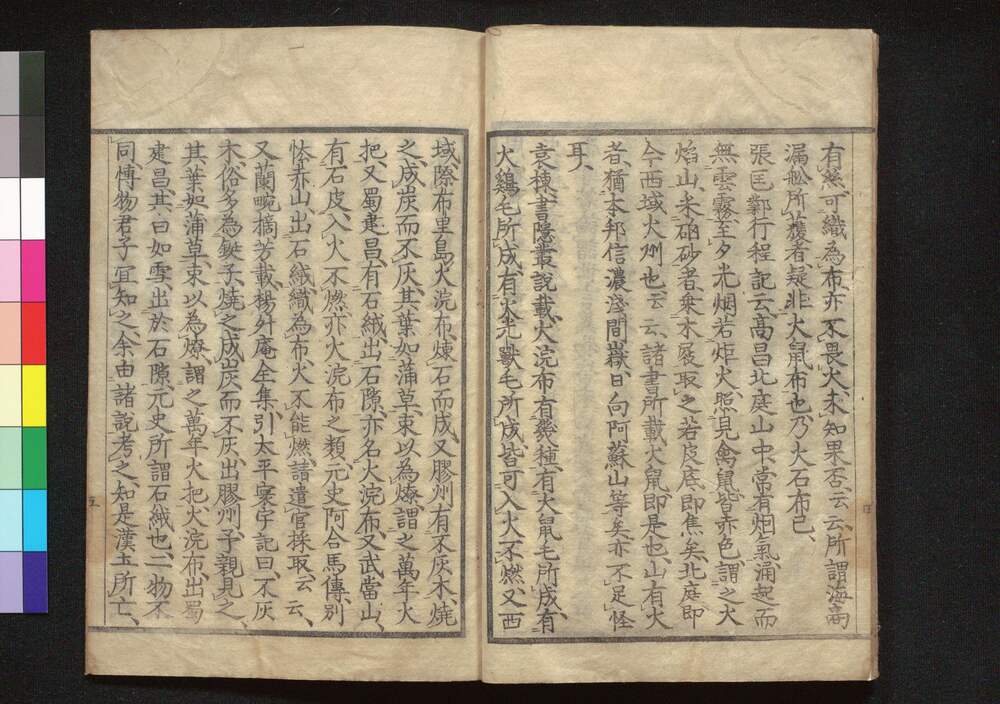 有蒸可織為布亦不畏火未知果否云云所謂海商
漏舩所獲者疑非火鼠布也乃火石布已
張匡鄴行程記云高昌北庭山中常有烟氣涌起而
無雲霧至夕光烟若炬火照見禽鼠皆赤色謂之火
焰山采硇砂者乗木屐取之若皮底即焦矣北庭即
今西域火州也云云諸書所載火鼠即是也山有火
者猶本邦信濃淺間嶽日向阿蘇山等矣亦不足怪
耳
袁棟書隱叢說載火浣布有幾種有火鼠毛所成有
火鷄毛所成有火光獸毛所成皆可入火不燃又西
域際布里島火浣布煉石而成又膠州有不灰木燒
之成炭而不灰其葉如蒲草束以為燎謂之萬年火
把又蜀建昌有石絨出石隙亦名火浣布又武當山
有石皮入火不燃亦火浣布之類元史阿合馬傳別
怯赤山出石絨織為布火不能燃請遣官採取云云
又蘭畹摘芳載楊升庵全集引太平寰宇記曰不灰
木俗多為鋌子燒之成炭而不灰出膠州予親見之
其葉如蒲草束以為燎謂之萬年火把火浣布出蜀
建昌其白如雪出於石隙元史所謂石絨也二物不
同博物君子宜知之余由諸說考之知是漢土所亡
五